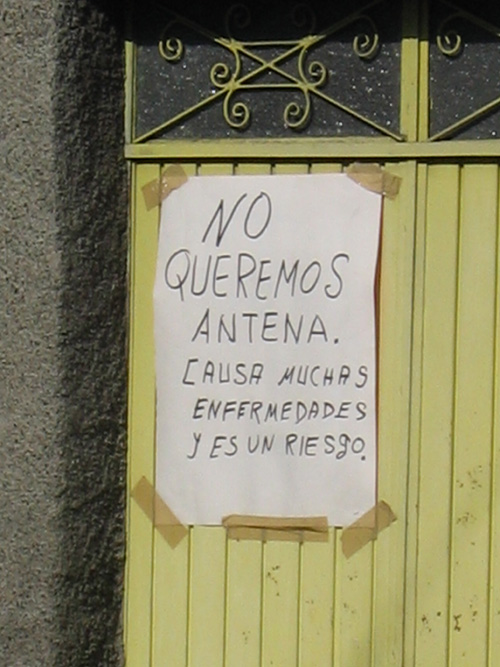 NO
QUEREMOS
ANTENA.
CAUSA MUCHAS
ENFERMEDADES
Y ES UN RIESGO.